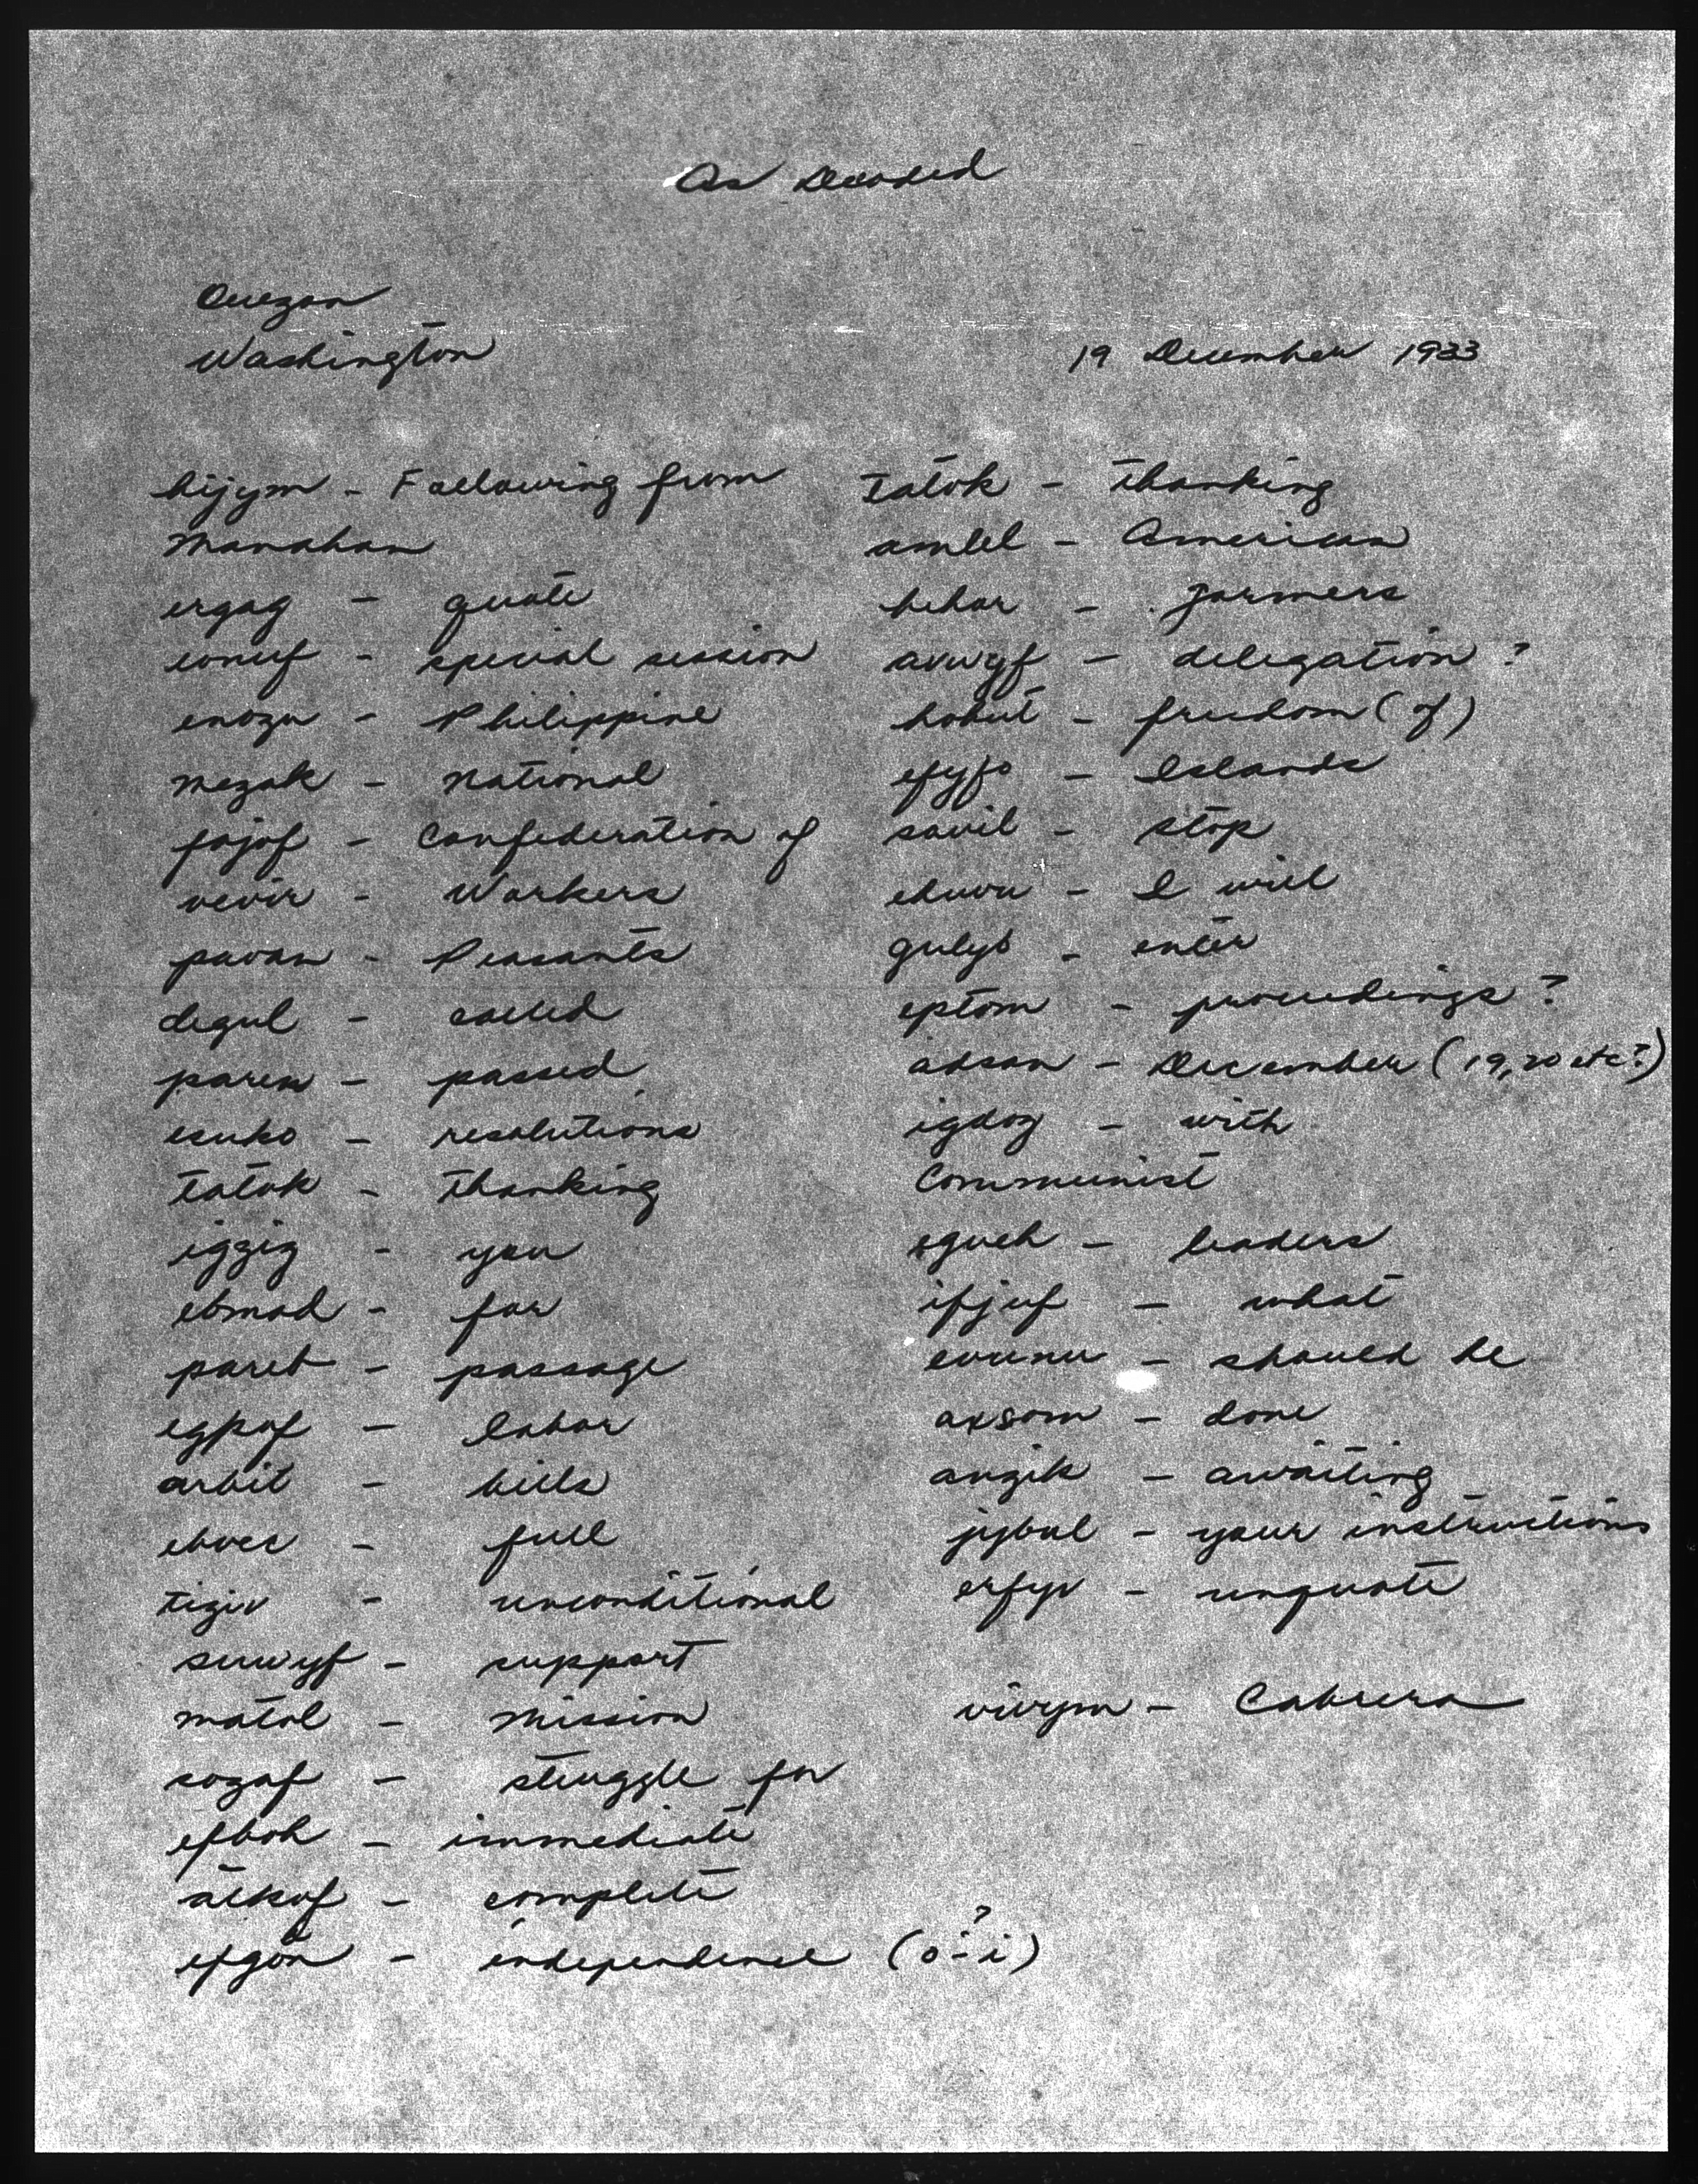 As Decoded
Quezon
Washington
19 December 1933
hijym - Following from
Manahan
ergag - quote
eonef - special session
enozu - Philippine
mezak - National
fojof - Confederation of
vevir - Workers
pavan - Peasants
degul - called
paren - passed
esuko - resolutions
tatok - thanking
iggig - you
ebmad - for
paret - passage
egpof - labor
arbit - bills
ehoec - full
tigiv - unconditional
suwyf - support
matol - mission
sozaf - struggle for
efboh - immediate
atkof - complete
efgon - independence (o - i) ?
tatok - thanking
amlel - American
hehar - farmers
avwyf - delegation ?
hohut - freedom (of)
efyfo - Islands
savil - stop
ehuvu - I will
gulyb - enter
eptom - proceedings ?
adsan - December (19, 20 etc?)
igdog - with
Communist
egueh - leaders
ifjuf - what
evunu - should be
axsom - done
angik - awaiting
jybul - your instructions
erfyv - unquote
vivym - Cabrera